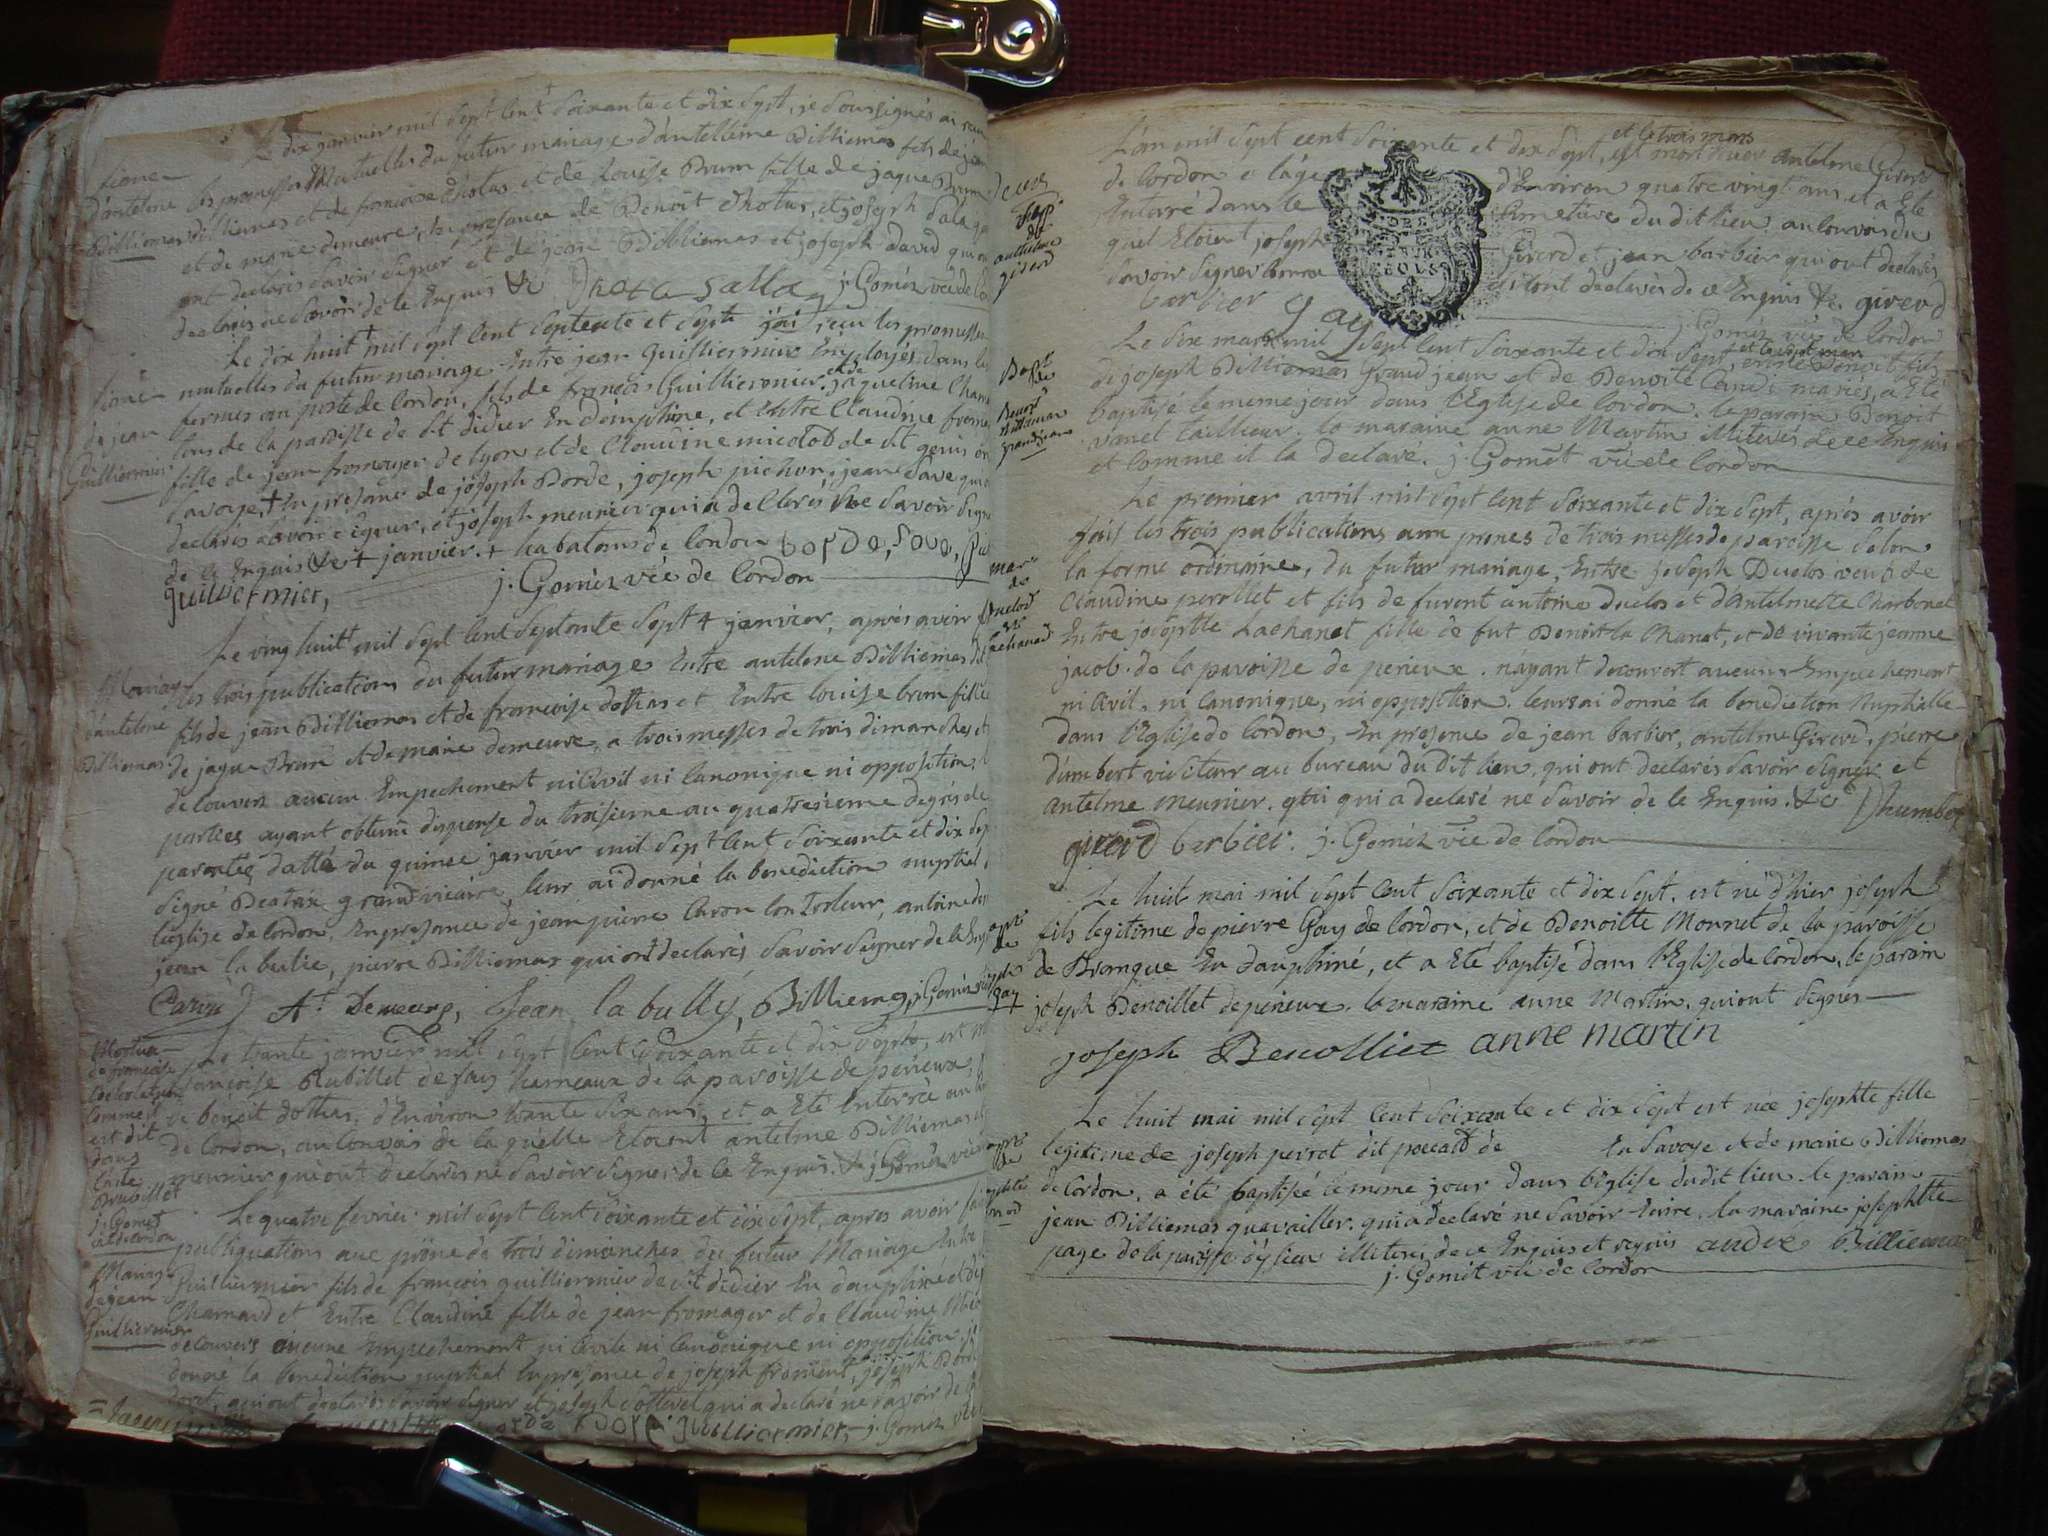 Le dix janvier mil sept cent soixante et dix sept, je soussignés ai
fiance
d'antelme les promesses Mutuelles du futur mariage d'antelleme Billiemas fils de jean
Billiemas Billiemas et de francoise dhotias et de Louise Brun fille de jaque Brun
et de marie demeure, en presance de Benoit dhotias, et joseph Sala
ont declarés savoir signer et de jean Billiemas et joseph david
declarés ne savoir de ce Enquis &c Salla j. Goméz vic de
Le dix huit + mil sept cent septente et sept j'ai reçu les promesses
mutuelles du futur mariage Entre jean Guilliermier Employés dans les
fiance
de jean fermes au poste de Cordon, fils de françois Guilliermier et de jaqueline
Guilliermier de la paroisse de St didier En dauphine, et Entre Claudine
fille de jean fromager de Lyon et de Claudine de St genis
Savoye, + En presance de joseph Borde, joseph pichon, jean
declarés savoir signer, et joseph meunier qui a declarés ne savoir
de ce Enquis &c + janvier. + habatans de Cordon borde,
guilliermier, j. Goméz vic de Cordon
Le ving huit mil sept cent septante sept + janvier, après avoir
Mariage les trois publications du futur mariage Entre antelme Billiemas
d'antelme fils de jean Billiemas et de francoise dotias et Entre Louise brun fille
Billiemas de jaque Brun et de marie demeure, a trois messes de trois dimanches
decouvert aucun Empechement ni Civil ni Canonique ni opposition
parties ayant obtenu dispense du troisieme au quatrieme degrés de
parentée datté du quinze janvier mil sept cent soixante et dix
signé Beatrix grand vicaire leur ai donné la benediction nuptial
l'eglise de Cordon. En presance de jean pierre Caron Controleur, antoine
jean la bulie, pierre Billiemas qui ont declarés savoir signer de ce
Caron At. Demeure, Jean la bully, Billiemas, j. Goméz
Mortua
de francoise
comme il
est dit
dans
l'acte
Rubillet
j. Gomet
vic de Cordon
Le trante janvier mil sept cent soixante et dix septe, est
francoise Rubillet de fay hameaux de la paroisse de perieux,
ve benoit dothias, d'Environ trante six ans, et a Eté Enterrée au
de Cordon, au Convois de la quelle Etoient antelme Billiemas
meunier qui ont declarés ne savoir signer de ce Enquis. &c j. Goméz vic
Le quatre fevrier mil sept cent soixante et dix sept, apres avoir
publiquations aux prône de trois dimanches du futur Mariage Entre
Mariage
de jean
Guilliermier
Guilliermier fils de francois guilliermier de St didier En dauphiné et de
Charnard et Entre Claudine fille de jean fromager et de Claudine
decouvers aucune Empechement ni Civile ni Canonique ni opposition
donné la benediction nuptial En presance de joseph froment, joseph Borde
qui ont declarés savoir signer et joseph Cottarel qui a declaré ne savoir de
guilliermier, j. Goméz vic
L'an mil sept cent soixante et dix sept, et le trois mars est mort hier antelme Girerd
de Cordon a l'âge d'Environ quatre vingt ans, et a Eté
Enterré dans le Cimetiére du dit lieu au Convois du
quel Etoient joseph Girerd et jean barbier qui ont declarés
Savoir signer comme ils l'ont declarés de ce Enquis &c. girerd
barbier gay j. Goméz vic de Cordon
antelme
girerd
Le six mars mil sept cent soixante et dix sept, et le sept mars
de joseph Billiemas Grandjean et de Benoite Caudi mariés, a Eté
Bapt.
de
Benoit
Billiemas
grandjean
baptisé le meme jour dans l'Eglise de Cordon. le parain Benoit
vanet tailleur. la maraine anne Martin illiterés de ce Enquis
et Comme il la declaré. j. Gomét vic de Cordon
Le premier avril mil sept cent soixante et dix sept, aprés avoir
fais les trois publications aux prones de trois messes de paroisse selon
mar.
de
Duclos
&
Lachanat
la forme ordinaire, du futur mariage, Entre joseph Duclos veuf de
Claudine perollet et fils de furent antoine duclos et d'antelmette Charbonet
Entre josephtte Lachanat fille de fut Benoit la Chanat, et de vivante jeanne
jacob. de la paroisse de perieux. n'ayant decouvert aucuns Empechement
ni Civil, ni Canonique, ni opposition. leurs ai donné la benediction Nuptialle
dans l'Eglise de Cordon, En presence de jean barbier, antelme Girerd, piérre
d'umbert visiteur au bureau du dit lieu, qui ont declarés savoir signer et
antelme meunier. qui a declaré ne savoir de ce Enquis. &c Dhumbert
girerd barbier. j. Goméz vic de Cordon
Le huit mai mil sept cent soixante et dix sept. est né d'hier joseph
fils legitime de pierre Gay de Cordon, et de Benoitte Monnet de la paroisse
de Brangue En dauphiné, et a Eté baptisé dans l'Eglise de Cordon, le parain
joseph Benoillet de perieux. la maraine anne Martin. qui ont signés
gay
joseph Benolliet anne martin
Le huit mai mil sept cent soixante et dix sept est née josephtte fille
legitime de joseph perrot dit poccard de En Savoye et de marie Billiemas
de Cordon, a été baptisée le meme jour dans l'Eglise du dit lieu le parain
jean Billiemas quavailler. qui a declaré ne savoir Ecrire. la maraine josephtte
page de la paroisse d'ÿlieu illiterés, de ce Enquis et requis andré Billiemas
j. Gomét vic de Cordon